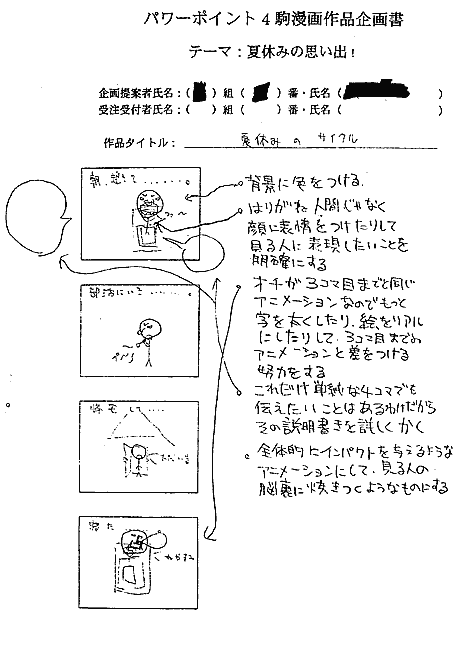 パワーポイント4駒漫画作品企画書
テーマ：夏休みの思い出！
企画提案者氏名：( ) 組 ( ) 番・氏名 ( )
受注受付者氏名：( ) 組 ( ) 番・氏名 ( )
作品タイトル： 夏休みのサイクル
朝、起きて……。
背景に色をつける。
はりがね人間じゃなく
顔に表情をつけたりして
見る人に表現したいことを
明確にする
オチが3コマ目までと同じ
アニメーションなのでもっと
字を太くしたり、絵をリアル
にしたりして、3コマ目までの
アニメーションと差をつける
努力をする
これだけ単純な4コマでも
伝えたいことはあるわけだから
その説明書きを詳しくかく
全体的にインパクトを与えるような
アニメーションにして、見る人の
脳裏に焼きつくようなものにする
部活にいて……。
帰宅して……
ただいま
寝た